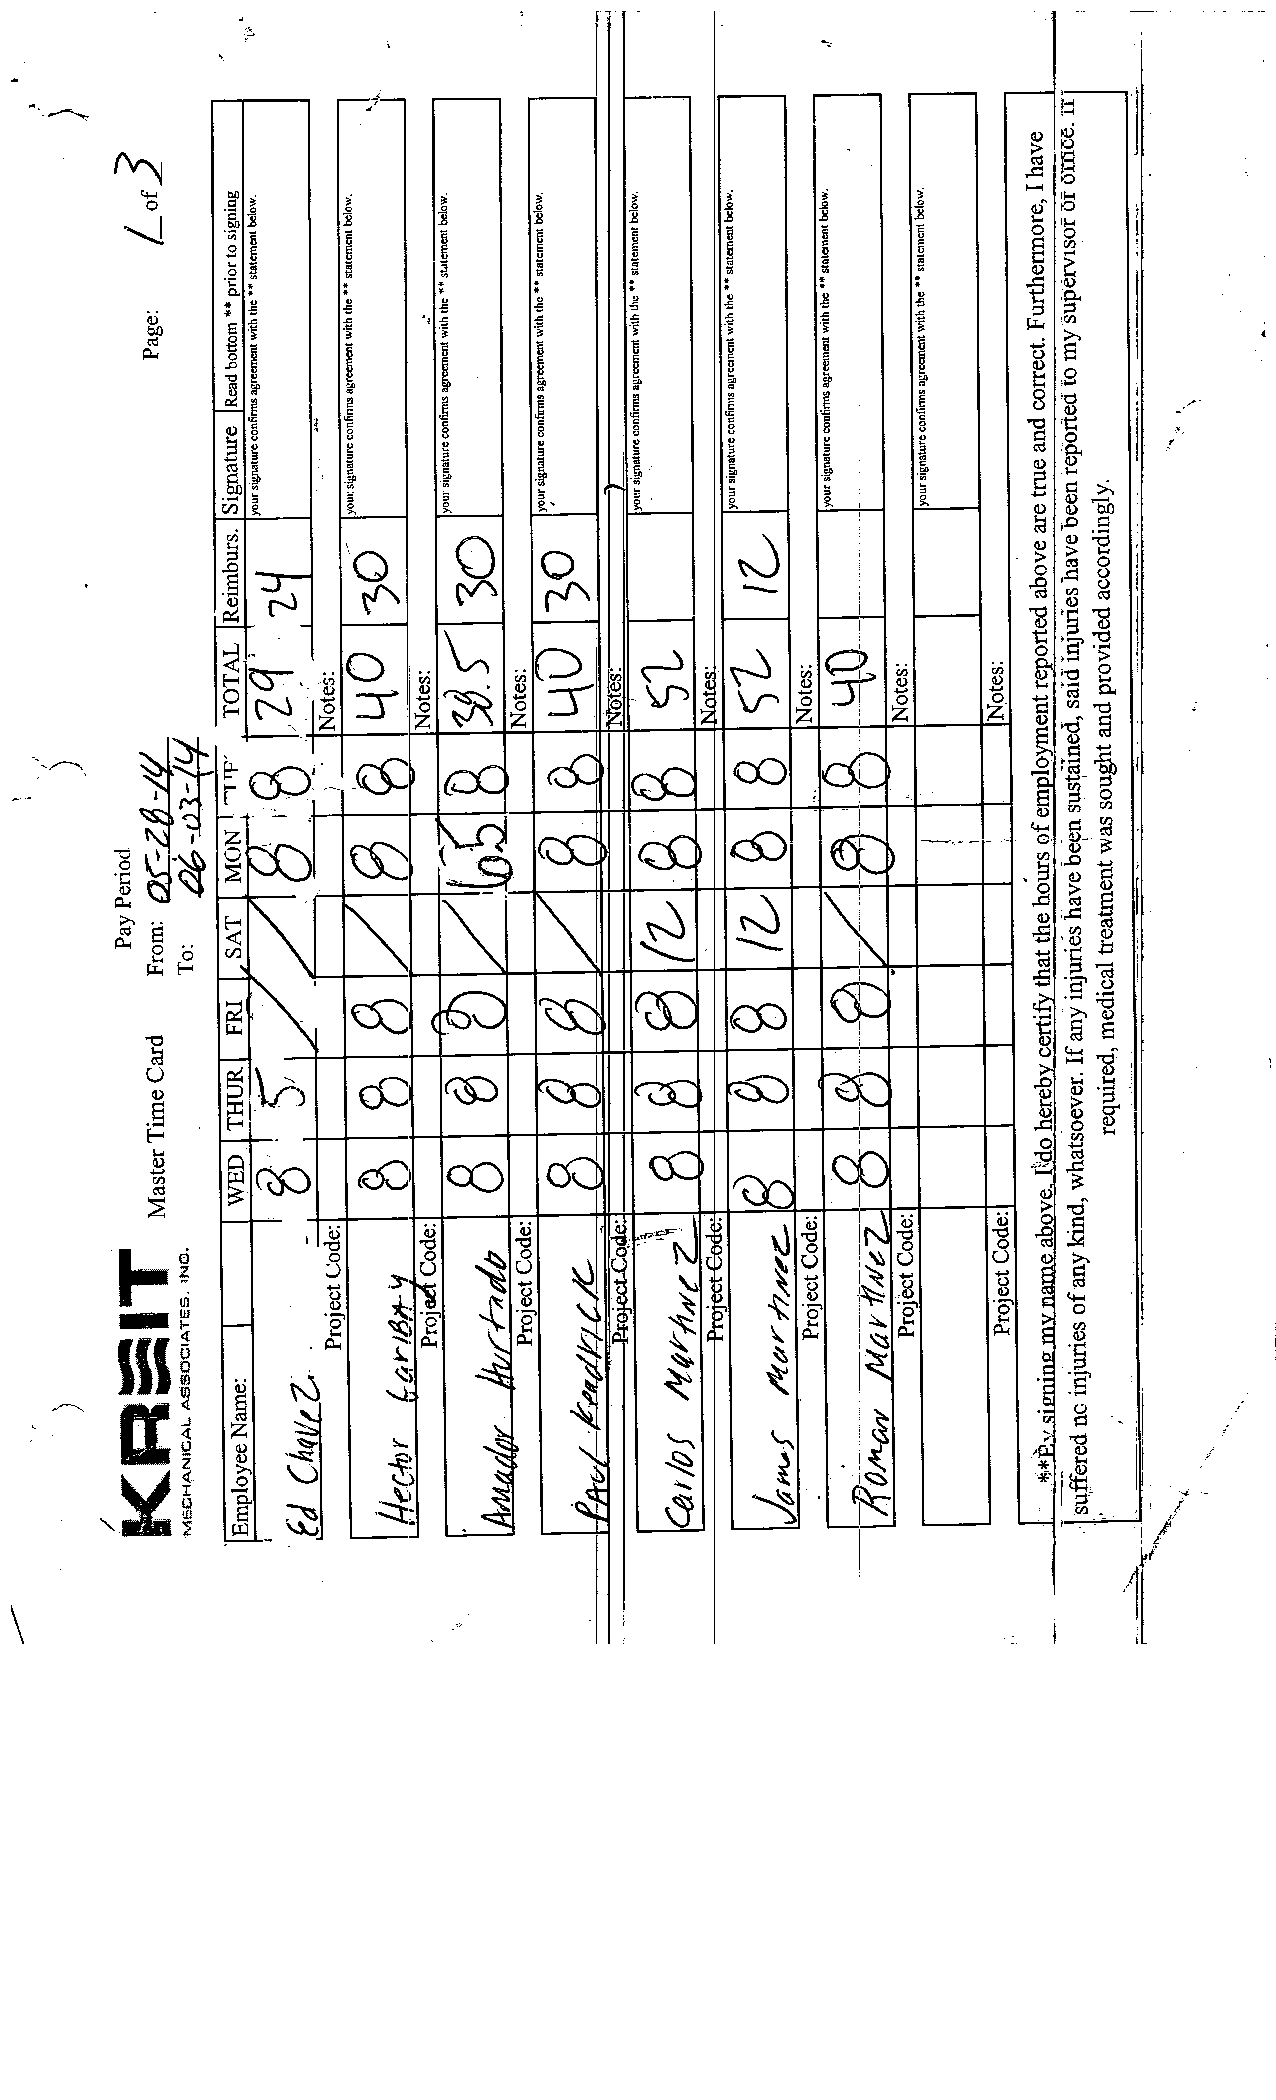 KREIT
MECHANICAL ASSOCIATES, INC.
Master Time Card
Pay Period
From: 05-28-14
To: 06-03-14
Page: 1 of 3
Employee Name: WED THUR FRI SAT MON TOTAL Reimburs. Signature Read bottom ** prior to signing
Ed Chavez 8 5 / / 8 8 29 24 your signature confirms agreement with the ** statement below.
Project Code: Notes:
Hector Gariba y 8 8 8 / 8 8 40 30 your signature confirms agreement with the ** statement below.
Project Code: Notes:
Amador Hurtado 8 8 8 / 6.5 8 38.5 30 your signature confirms agreement with the ** statement below.
Project Code: Notes:
Paul Kendrick 8 8 8 / 8 8 40 30 your signature confirms agreement with the ** statement below.
Project Code: Notes:
Carlos Martinez 8 8 8 12 8 8 52 your signature confirms agreement with the ** statement below.
Project Code: Notes:
James Martinez 8 8 8 12 8 8 52 12 your signature confirms agreement with the ** statement below.
Project Code: Notes:
Roman Martinez 8 8 8 / 8 8 40 your signature confirms agreement with the ** statement below.
Project Code: Notes:
your signature confirms agreement with the ** statement below.
Project Code: Notes:
**By signing my name above, I do hereby certify that the hours of employment reported above are true and correct. Furthermore, I have
suffered no injuries of any kind, whatsoever. If any injuries have been sustained, said injuries have been reported to my supervisor or office. If
required, medical treatment was sought and provided accordingly.